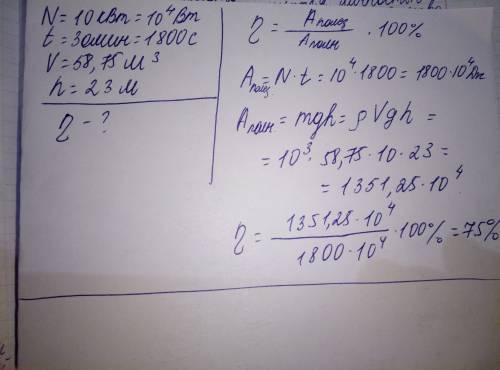 N = 10 кВт = 10⁴ Вт
t = 30 мин = 1800 с
V = 58,75 м³
h = 23 м
η - ?
η = Aполез / Aполн · 100%
Aполез = N · t = 10⁴ · 1800 = 1800 · 10⁴ Дж
Aполн = mgh = ρVgh =
= 10³ · 58,75 · 10 · 23 =
= 1351,25 · 10⁴
η = 1351,25 · 10⁴ / 1800 · 10⁴ · 100% = 75%